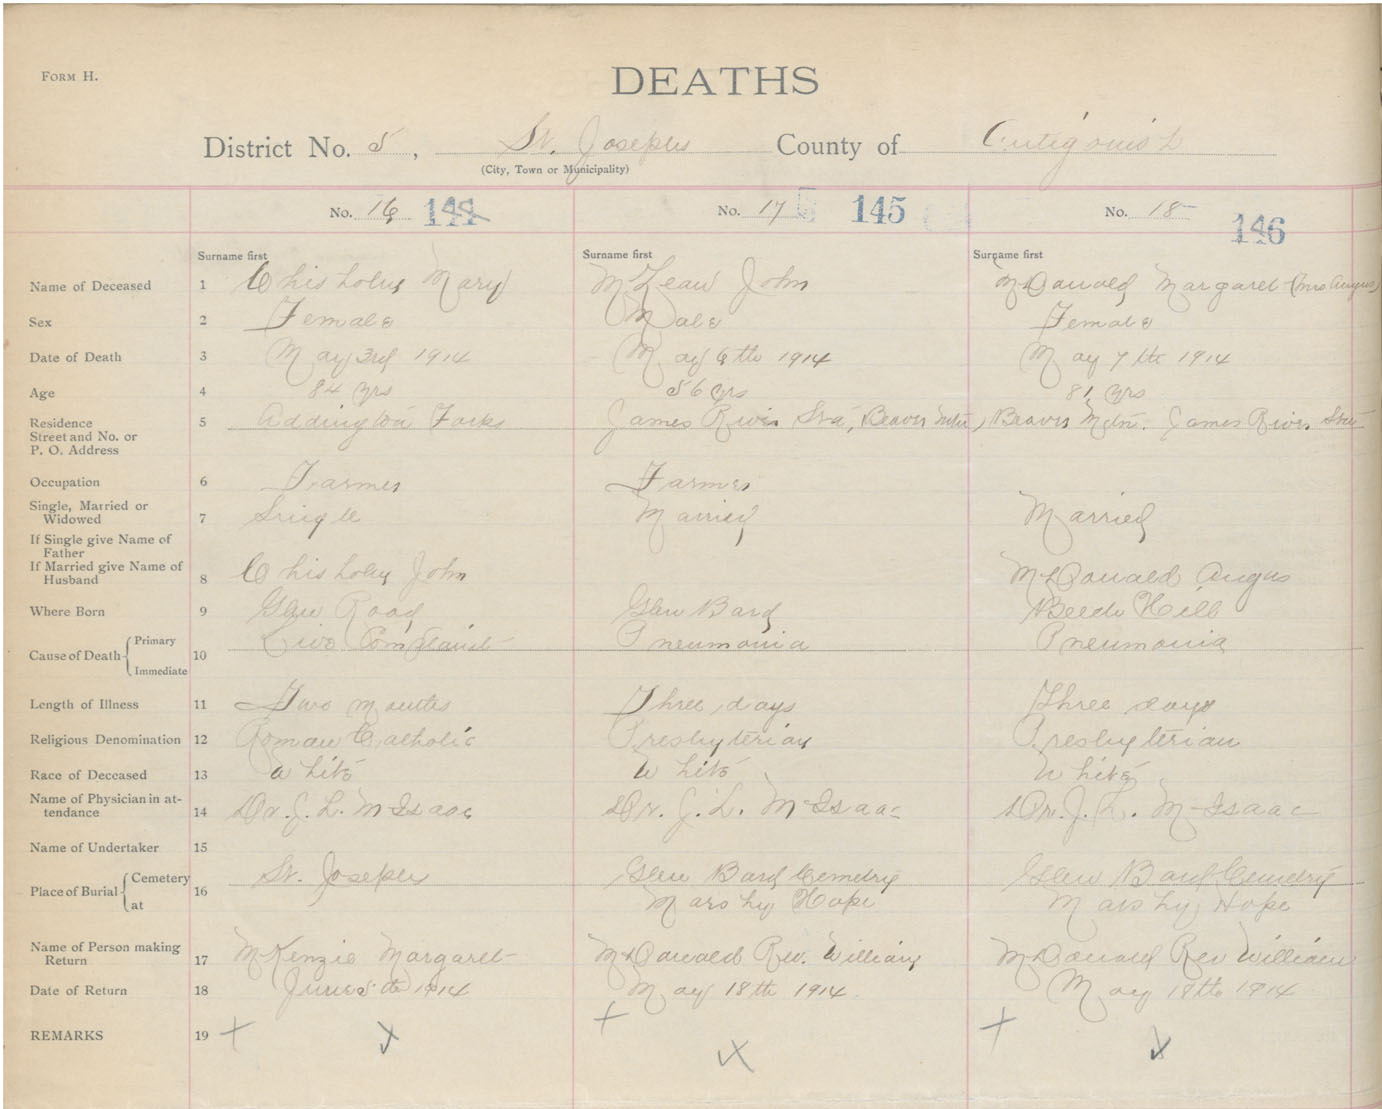 FORM H.
DEATHS
District No. 5, St. Josephs County of Antigonish
(City, Town or Municipality)
No. 16 144 No. 17 145 No. 18 146
Surname first Surname first Surname first
Name of Deceased 1 Chisholm Mary McLean John McDonald Margaret (Mrs Angus)
Sex 2 Female Male Female
Date of Death 3 May 3rd 1914 May 6th 1914 May 7th 1914
Age 4 84 yrs 56 yrs 81 yrs
Residence 5 Addington Forks James River Sta, Beaver Mtn, Beaver Mtn. James River Sta
Street and No. or
P. O. Address
Occupation 6 Farmer Farmer
Single, Married or
Widowed 7 Single Married Married
If Single give Name of
Father
If Married give Name of
Husband 8 Chisholm John McDonald Angus
Where Born 9 Glen Road Glen Bard Beech Hill
Cause of Death Primary Complaint Pneumonia Pneumonia
10
Immediate
Length of Illness 11 Two months Three days Three days
Religious Denomination 12 Roman Catholic Presbyterian Presbyterian
Race of Deceased 13 White White White
Name of Physician in at-
tendance 14 Dr. J. L. McIsaac Dr. J. L. McIsaac Dr. J. L. McIsaac
Name of Undertaker 15
Place of Burial Cemetery 16 St. Josephs Glen Bard Cemetry Glen Bard Cemetry
at Marshy Hope Marshy Hope
Name of Person making
Return 17 McKenzie Margaret McDonald Rev. William McDonald Rev William
Date of Return 18 June 5th 1914 May 18th 1914. May 18th 1914
REMARKS 19